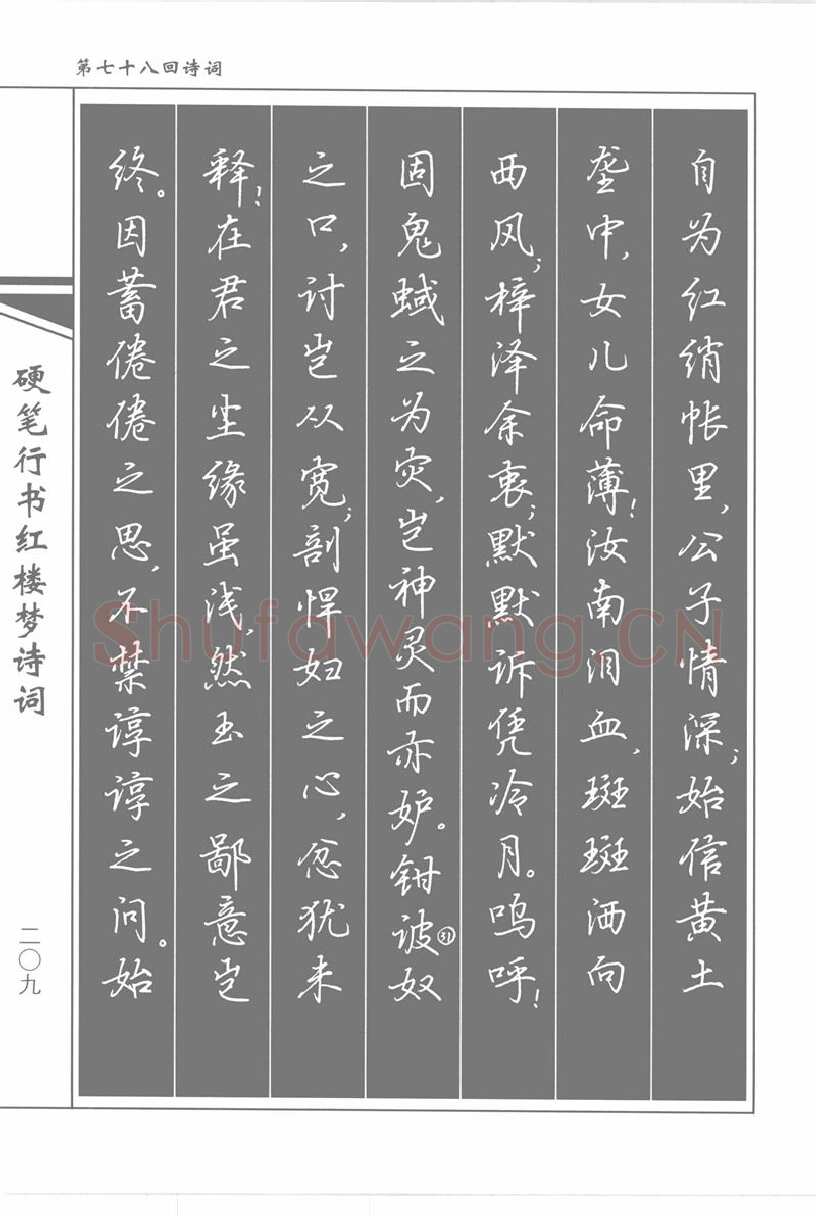 第七十八回诗词
自为红绡帐里，公子情深；始信黄土
垄中，女儿命薄！汝南泪血，斑斑洒向
西风；梓泽余衷，默默诉凭冷月。呜呼！
固鬼蜮之为灾，岂神灵而亦妒。钳诐㉛奴
之口，讨岂从宽；剖悍妇之心，忿犹未
释！在君之尘缘虽浅，然玉之鄙意岂
终。因蓄惓惓之思，不禁谆谆之问。始
硬笔行书红楼梦诗词
二〇九
Shufawang.CN